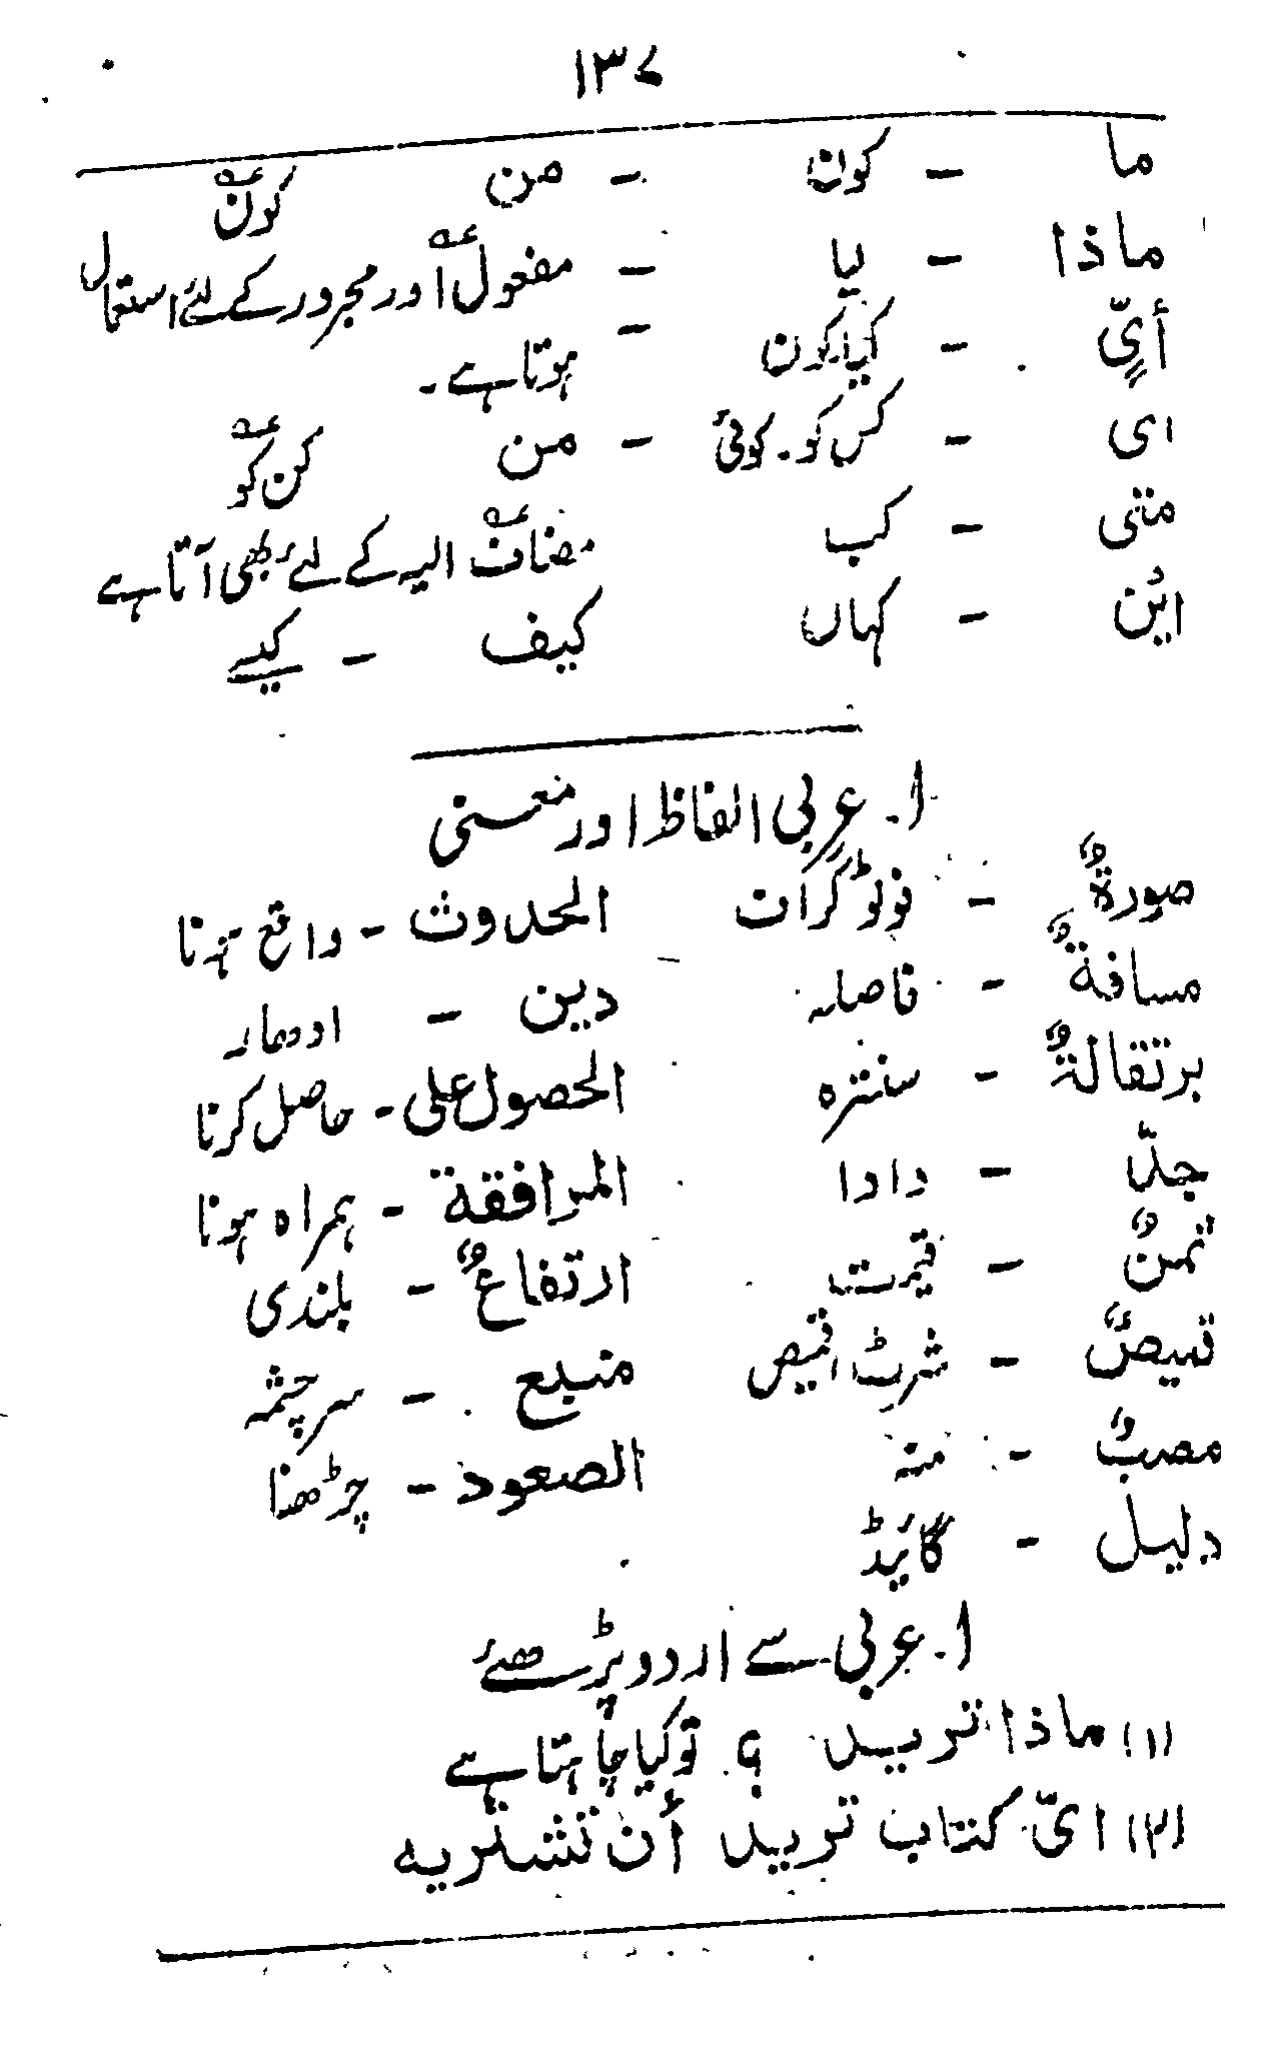 ۱۳۷
ما - کون - من کون
ماذا - لیا - مفعول اور مجرور کے لئے استعمال
أیٍّ - کیا۔کون - ہوتا ہے۔
ای - کس کو۔ کوئی - من کن کو
متی - کب مضاف الیہ کے لئے بھی آتا ہے
این - کہاں کیف - کیسے
۱۔ عربی الفاظ اور معنی
صورةٌ - فوٹو گراف الحدوث - واقع ہونا
مسافةٌ - فاصلہ دین - ادھار
برتقالةٌ - سنترہ الحصول علی - حاصل کرنا
جدّ - دادا المرافقة - ہمراہ ہونا
ثمنٌ - قیمت ارتفاعٌ - بلندی
قمیصٌ - شرٹ، قمیص منبع - سرچشمہ
مصبٌ - الصعود - چڑھنا
دلیل - گائیڈ
۱۔ عربی سے اردو پڑھئے
(۱) ماذا ترید ؟ تو کیا چاہتا ہے
(۲) ایّ کتاب ترید أن تشتریه